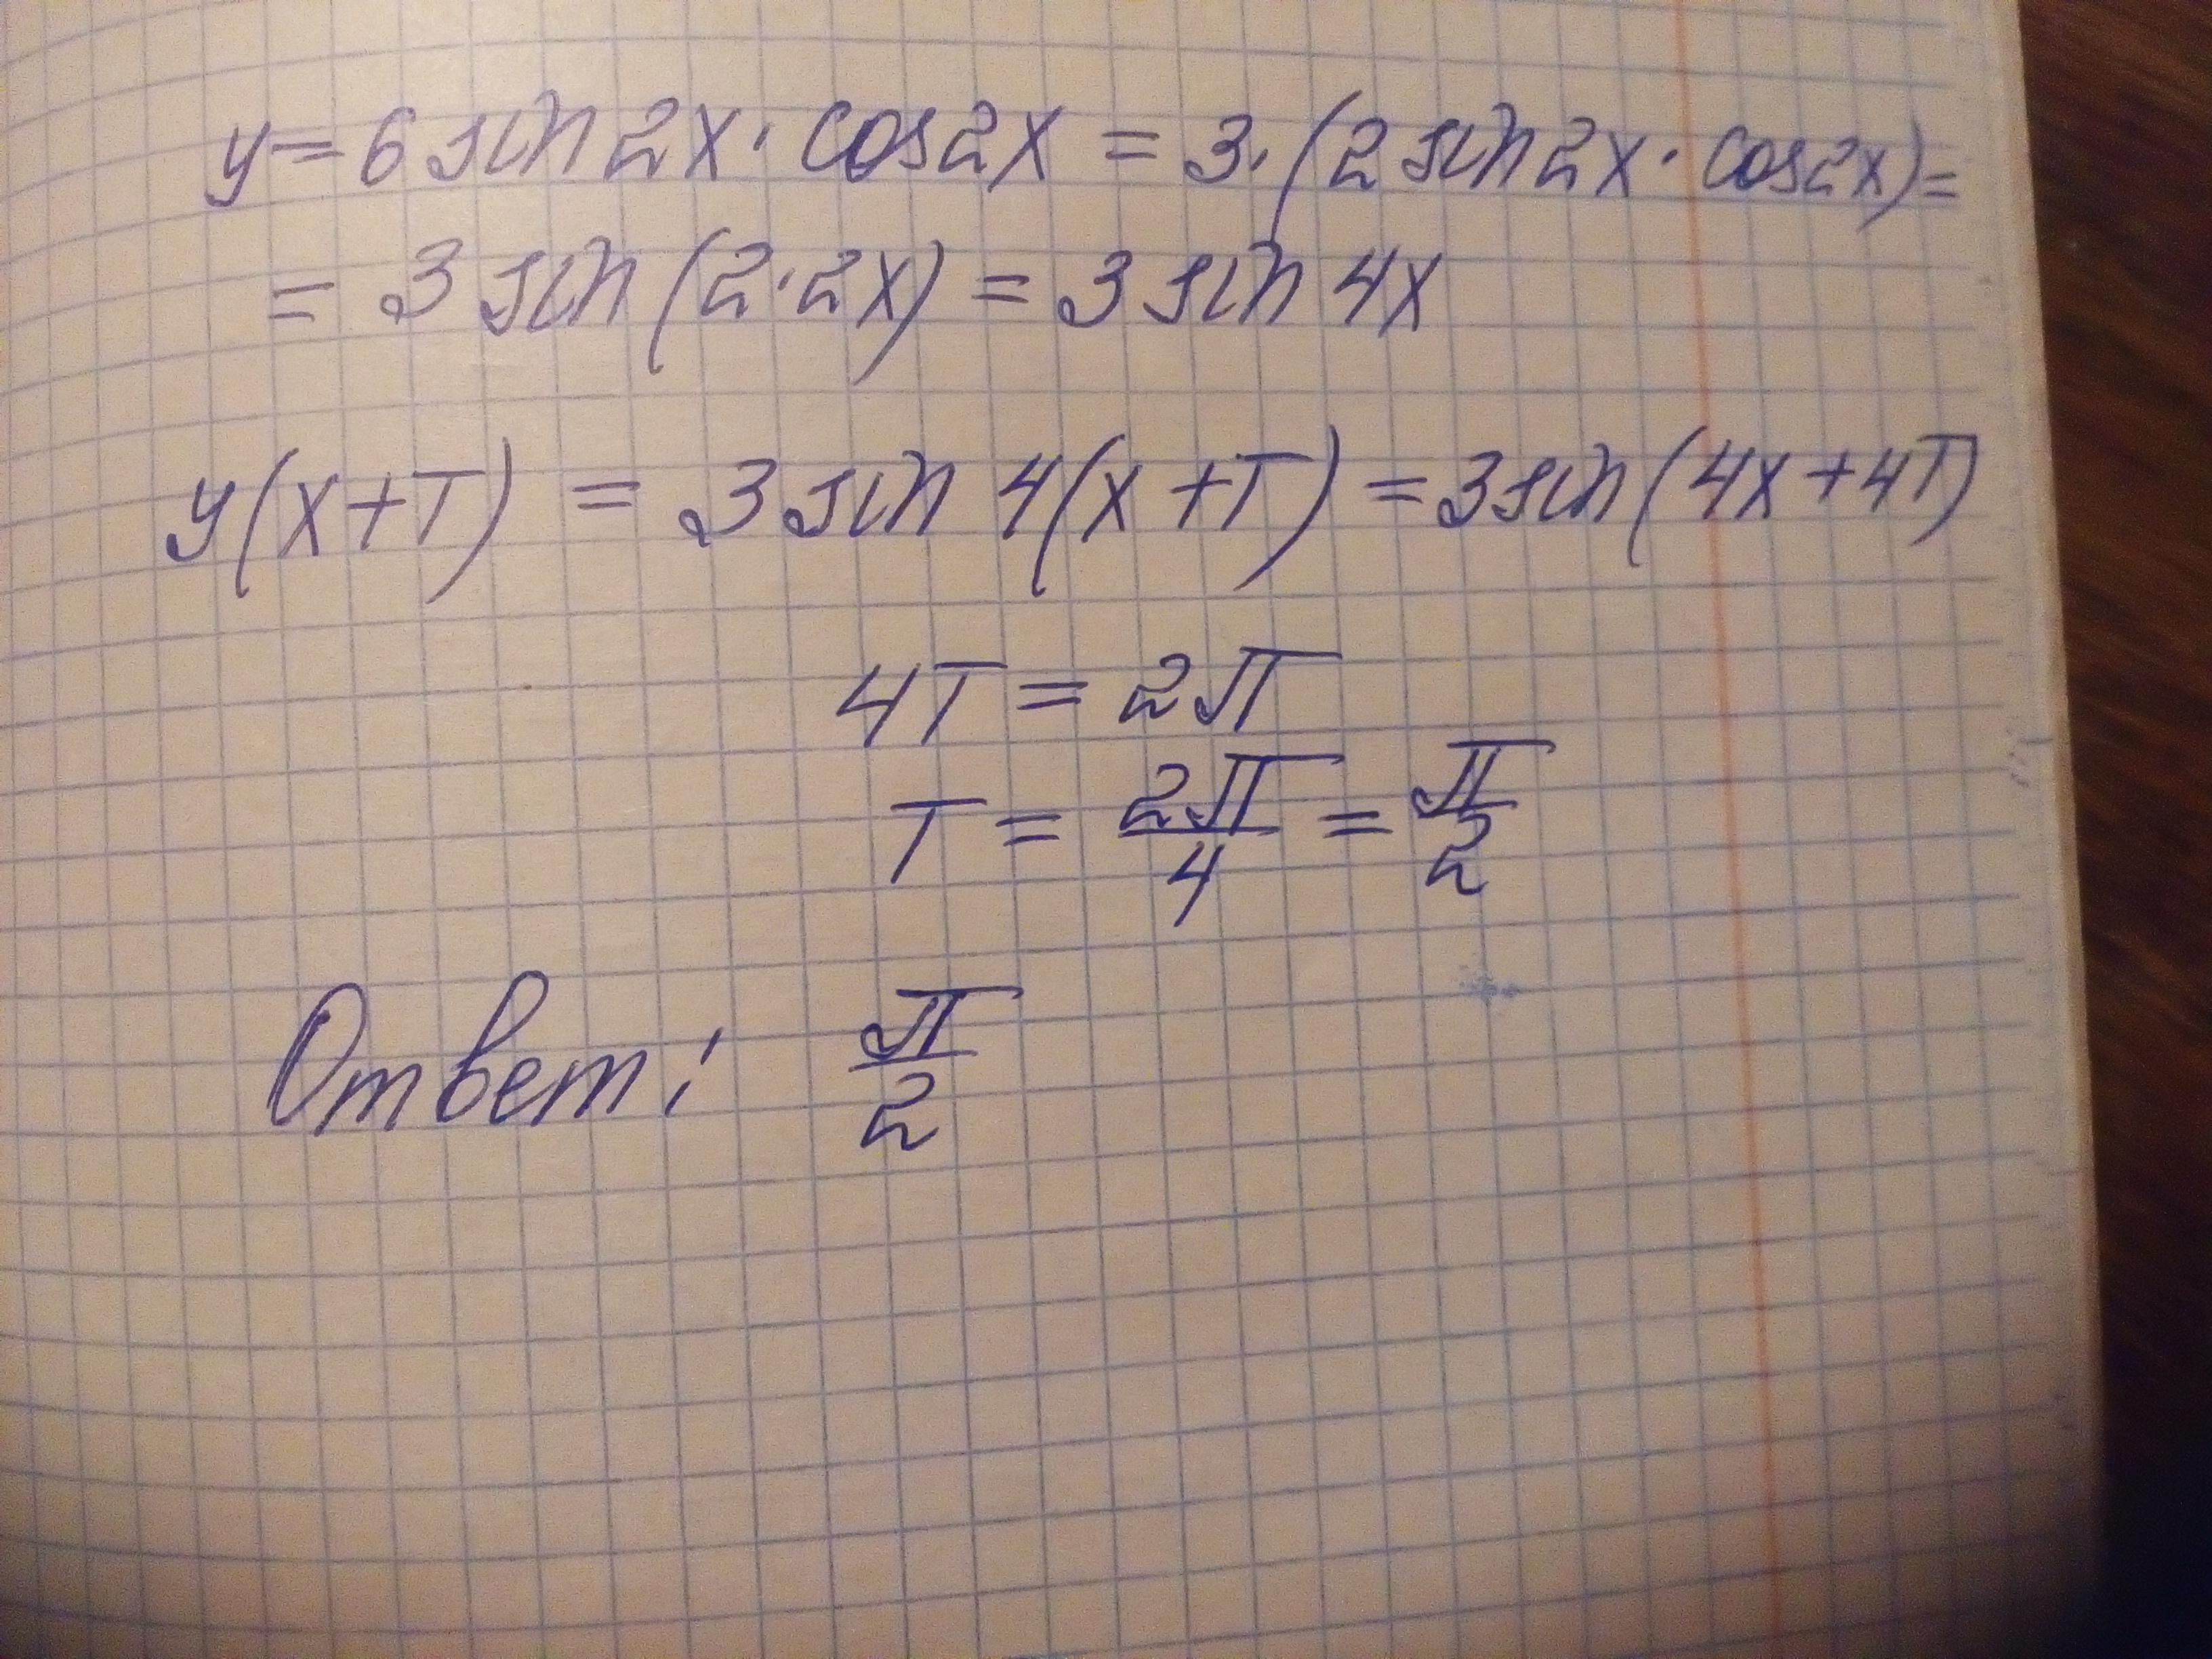 y = 6 sin 2x · cos 2x = 3 · (2 sin 2x · cos 2x) =
= 3 sin (2 · 2x) = 3 sin 4x
y(x+T) = 3 sin 4(x+T) = 3 sin (4x+4T)
4T = 2π
T = 2π/4 = π/2
Ответ: π/2